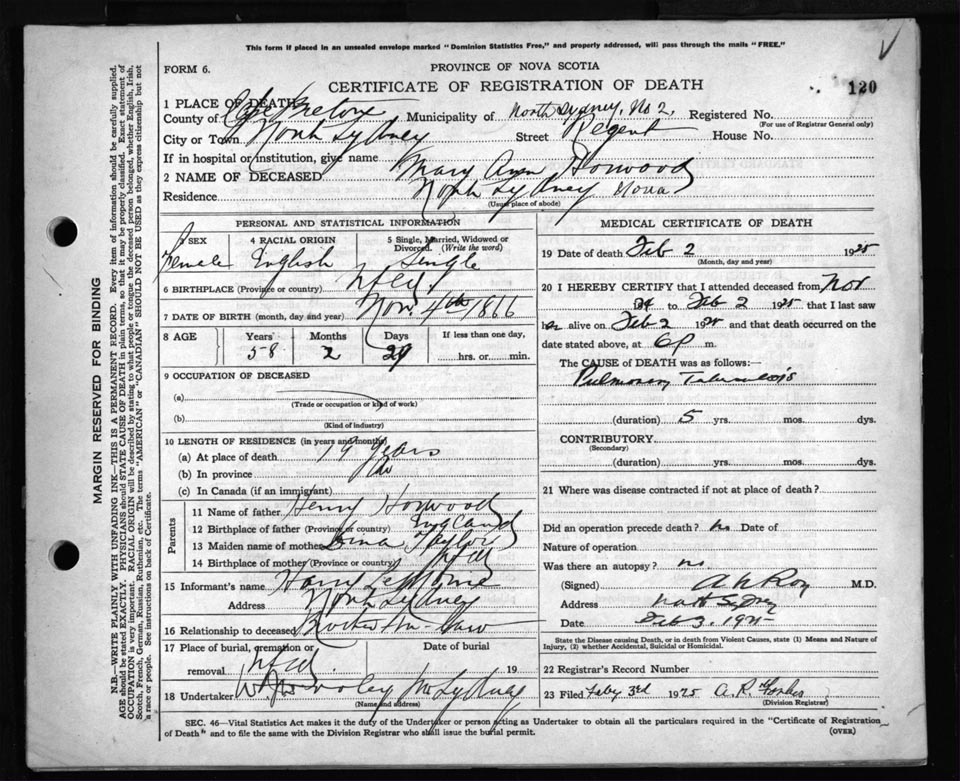 This form if placed in an unsealed envelope marked "Dominion Statistics Free," and properly addressed, will pass through the mails "FREE."
FORM 6.
PROVINCE OF NOVA SCOTIA
CERTIFICATE OF REGISTRATION OF DEATH
120
1 PLACE OF DEATH
County of Cape Breton Municipality of North Sydney, No 2, Registered No.
(For use of Registrar General only)
City or Town North Sydney Street Regent House No.
If in hospital or institution, give name
2 NAME OF DECEASED Mary Ann Horwood
Residence North Sydney Nova S
(Usual place of abode)
PERSONAL AND STATISTICAL INFORMATION
3 SEX 4 RACIAL ORIGIN 5 Single, Married, Widowed or Divorced. (Write the word)
Female English Single
6 BIRTHPLACE (Province or country) Nfld
7 DATE OF BIRTH (month, day and year) Nov. 4th 1866
8 AGE Years Months Days If less than one day,
58 2 29 hrs. or min.
9 OCCUPATION OF DECEASED
(a)
(Trade or occupation or kind of work)
(b)
(Kind of industry)
10 LENGTH OF RESIDENCE (in years and months)
(a) At place of death 19 years
(b) In province
(c) In Canada (if an immigrant)
Parents
11 Name of father Henry Horwood
12 Birthplace of father (Province or country) England
13 Maiden name of mother Taylor
14 Birthplace of mother (Province or country) Nfld
15 Informant's name Harry
Address North Sydney
16 Relationship to deceased Brother in-law
17 Place of burial, cremation or removal Nfld Date of burial 19
18 Undertaker No Sydney
(Name and address)
MEDICAL CERTIFICATE OF DEATH
19 Date of death Feb 2 1925
(Month, day and year)
20 I HEREBY CERTIFY that I attended deceased from Nov
24 to Feb 2 1925 that I last saw
her alive on Feb 2 1925 and that death occurred on the
date stated above, at 6 P m.
The CAUSE of DEATH was as follows:—
Pulmonary Tuberculosis
(duration) 5 yrs. mos. dys.
CONTRIBUTORY
(Secondary)
(duration) yrs. mos. dys.
21 Where was disease contracted if not at place of death?
Did an operation precede death? no Date of
Nature of operation
Was there an autopsy? no
(Signed) M.D.
Address North Sydney
Date Feb 3. 1925
State the Disease causing Death, or in death from Violent Causes, state (1) Means and Nature of
Injury, (2) whether Accidental, Suicidal or Homicidal.
22 Registrar's Record Number
23 Filed Feby 3rd 1925 A. R. Forbes
(Division Registrar)
SEC. 46—Vital Statistics Act makes it the duty of the Undertaker or person acting as Undertaker to obtain all the particulars required in the "Certificate of Registration
of Death" and to file the same with the Division Registrar who shall issue the burial permit.
(OVER)
MARGIN RESERVED FOR BINDING
N.B.—WRITE PLAINLY WITH UNFADING INK—THIS IS A PERMANENT RECORD. Every item of information should be carefully supplied.
AGE should be stated EXACTLY. PHYSICIANS should STATE CAUSE OF DEATH in plain terms, so that it may be properly classified. Exact statement of
OCCUPATION is very important. RACIAL ORIGIN will be described by stating to what people or tongue the deceased person belonged, whether English, Irish,
Scotch, French, German, Russian, Ruthenian, etc. The terms "AMERICAN" or "CANADIAN" SHOULD NOT BE USED as they express citizenship but not
a race or people. See instructions on back of Certificate.